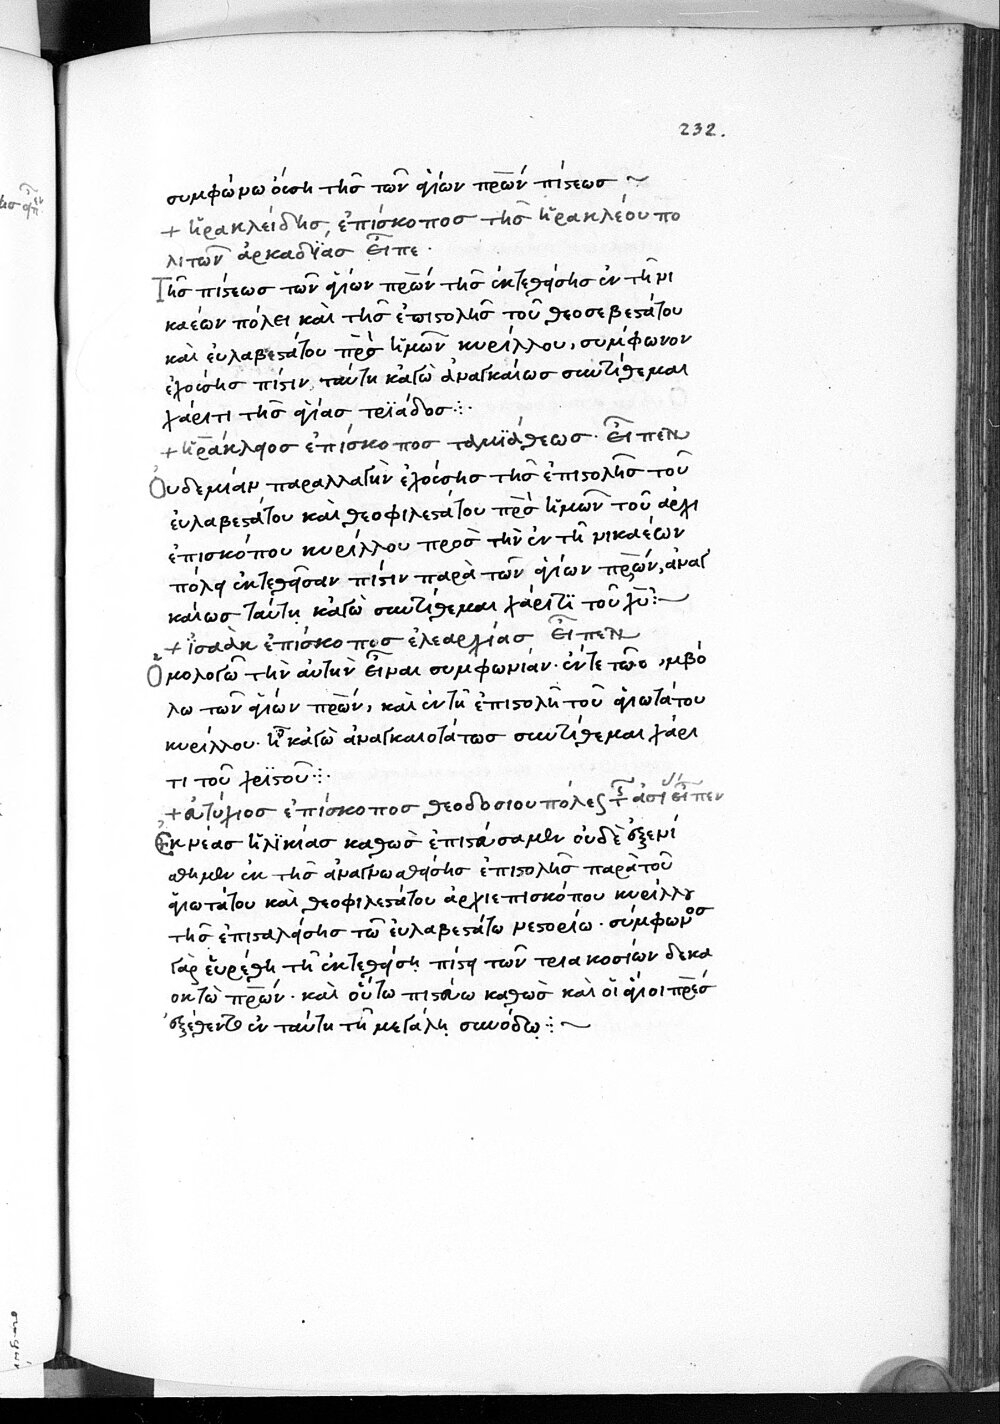 232.
συμφώνω ούση της των αγίων πρων πίστεως
+ Ηρακλείδης, επίσκοπος της Ηρακλέουπο
λιτών αρκαδΐας είπε.
Της πίστεως των αγίων πρων της εκτεθείσης εν τη νι
καέων πόλει και της επιστολής του θεοσεβεστάτου
και ευλαβεστάτου προς ημών κυρίλλου, σύμφωνον
εχούσης πίστιν, ταύτη καγώ αναγκαίως συντίθεμαι
χάριτι της αγίας τρϊάδος :·
+ Ηράκλειος επίσκοπος ταμϊάθεως. είπεν
Ουδεμίαν παραλλαγήν εχούσης της επιστολής του
ευλαβεστάτου και θεοφιλεστάτου προς ημών του αρχι
επισκόπου κυρίλλου προς την εν τη νικαέων
πόλει εκτεθείσαν πίστιν παρά των αγίων πρων, αναγ
καίως ταύτη καγώ συντίθεμαι χάριτϊ του χυ :
+ ϊσαάκ επίσκοπος ελεαρχίας είπεν
Ομολογώ την αυτήν είναι συμφωνίαν. έν τε τω συμβό
λω των αγίων πρων, και εν τη επιστολή του αγιωτάτου
κυρίλλου. η καγώ αναγκαιοτάτως συντίθεμαι χάρι
τι του χρϊστου :·
+ ευτύχιος επίσκοπος θεοδοσιουπόλες της ασι είπεν
Εκ νέας ηλϊκίας καθώς επιστεύσαμεν ουδέν εξενί
σθημεν εκ της αναγνωσθείσης επιστολής παρά του
αγιωτάτου και θεοφιλεστάτου αρχιεπισκόπου κυρίλλου
της επισταλείσης τω ευλαβεστάτω νεστορίω. σύμφωνος
γαρ ευρέθη τη εκτεθείση πίστει των τριακοσίων δεκα
οκτώ πρων. και ούτω πιστεύω καθώς και οι άγιοι πρες
εξέθεντο εν ταύτη τη μεγάλη συνόδω :